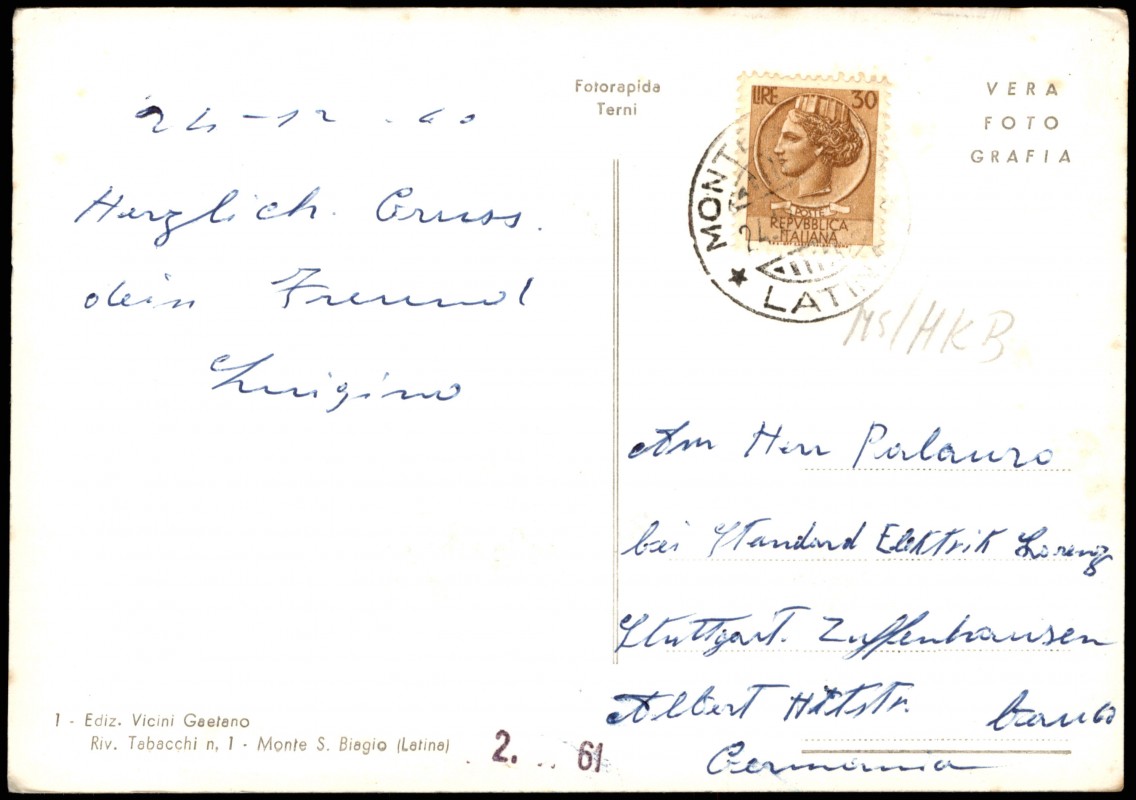 24-12 . 60
Herzlich. Gruss.
dein Freund
Luigino
Fotorapida
Terni
VERA
FOTO
GRAFIA
LIRE 30
POSTE
REPVBBLICA
ITALIANA
MONT
★ LATIN
MS/HKB
Am Herr Palauro
bei Standard Elektrik Lorenz
Stuttgart. Zuffenhausen
Albert Hitstr.
Germania
1 - Ediz. Vicini Gaetano
Riv. Tabacchi n, 1 - Monte S. Biagio (Latina)
2. 61